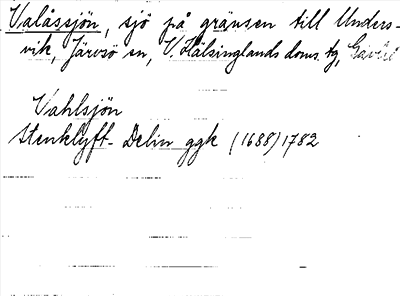 Valåssjön, sjö på gränsen till Unders-
vik, Järvsö sn, V. Hälsinglands doms. tg, Gävlel
Vahlsjön
Stenklyft- Delin ggk (1688) 1782